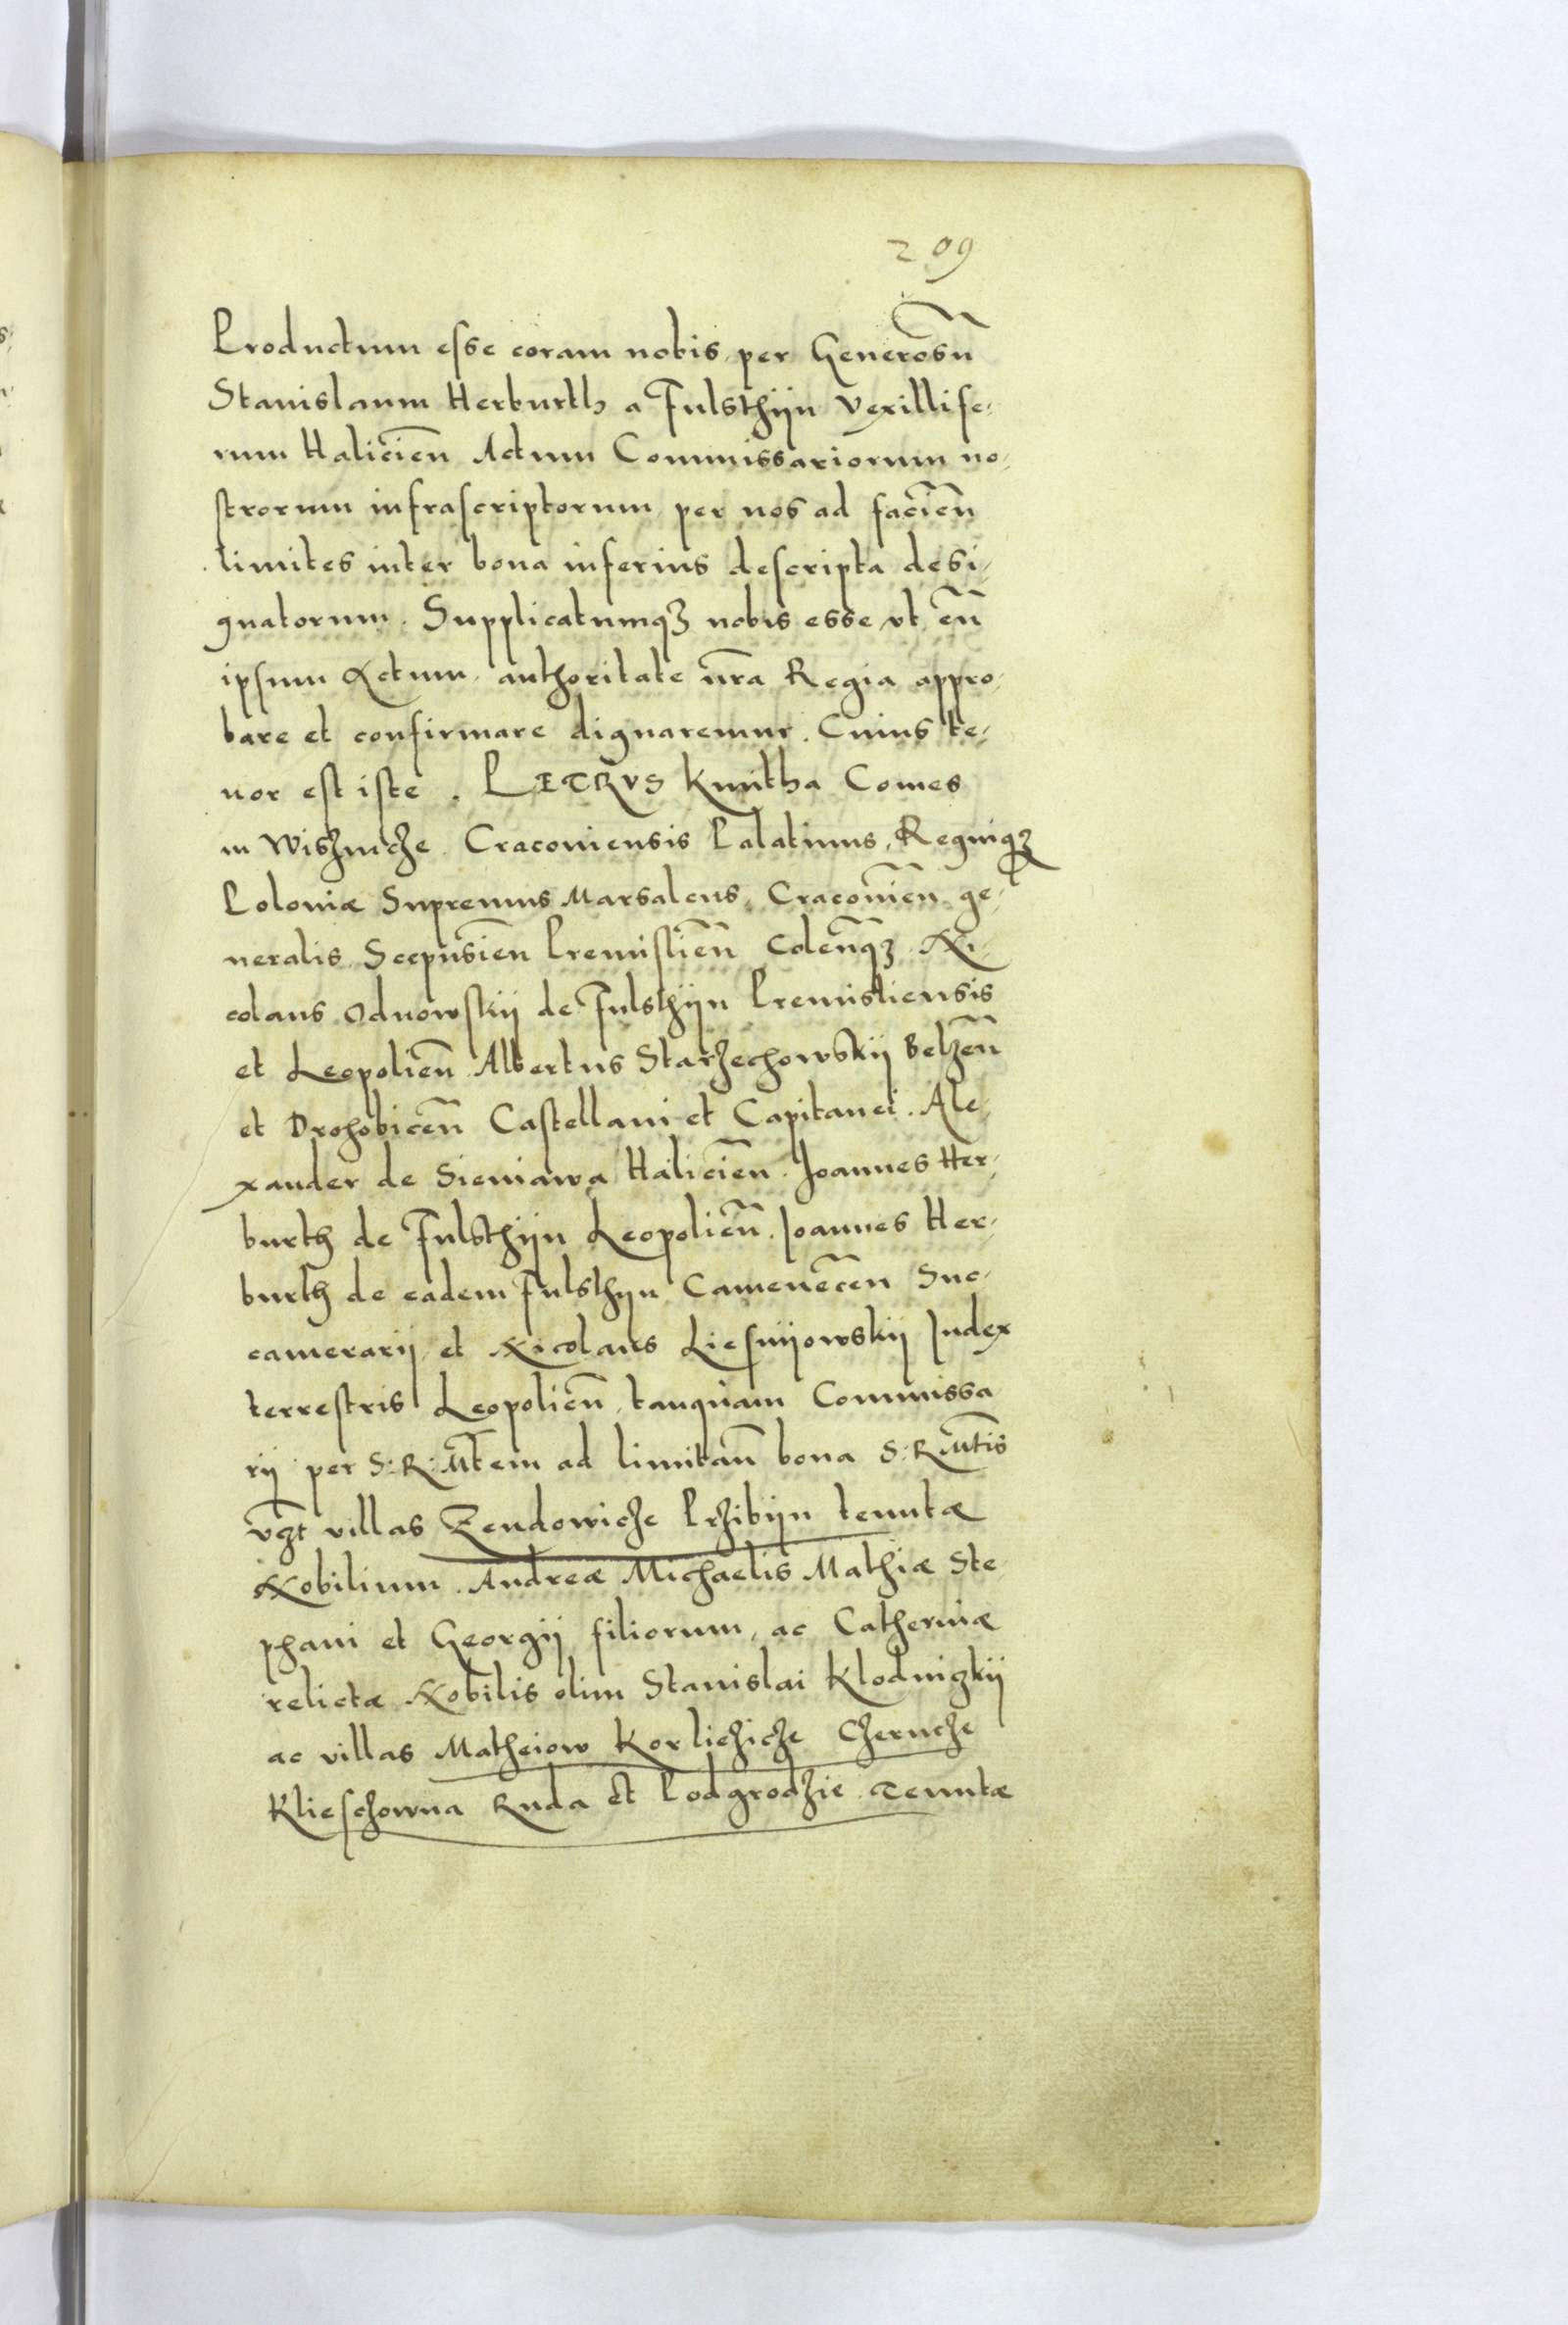 209
Productum esse coram nobis per Generosū
Stanislaum Herburth a Fulsthijn Vexillife-
rum Haliciēn Actum Commissariorum no-
strorum infrascriptorum per nos ad faciēn
limites inter bona inferius descripta desi-
gnatorum. Supplicatumqꝫ nobis esse vt eū
ipsum Actum authoritate n̄ra Regia appro-
bare et confirmare dignaremur. Cuius te-
nor est iste. PETRVS Kmitha Comes
in Wisznicze Cracoviensis Palatinus, Regniqꝫ
Poloniæ Supremus Marsalcus, Cracoviēn ge-
neralis Scepusiēn Premisliēn Colēnqꝫ Ni-
colaus Odnowskij de Fulsthijn Premisliensis
et Leopoliēn Albertus Starzechowskij Belzēn
et Drohobicēn Castellani et Capitanei. Ale-
xander de Sieniawa Haliciēn. Joannes Her-
burth de Fulsthijn Leopoliēn. Joannes Her-
burth de eadem Fulsthijn Camenecēn Suc-
camerarij et Nicolaus Liesnijowskij Judex
terrestris Leopoliēn tanquam Commissa
rij per S: R: M̄tem ad limitan̄ bona S: R M̄tis
vȝt villas Zendowicze Przibijn tenutæ
Nobilium Andreæ Michaelis Mathiæ Ste
phani et Georgij filiorum, ac Catherinæ
relictæ Nobilis olim Stanislai Klodnizkij
ac villas Matheiow Korliczicze Chernche
Klieschowna Ruda et Podgrodzie Tenutæ